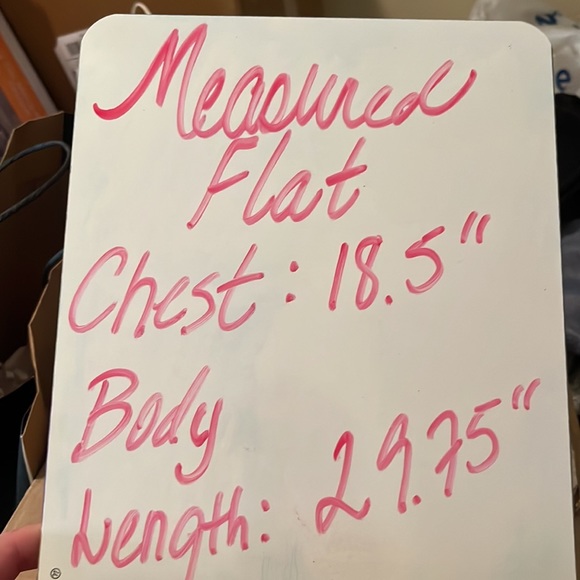 Measured
Flat
Chest: 18.5"
Body
Length: 29.75"